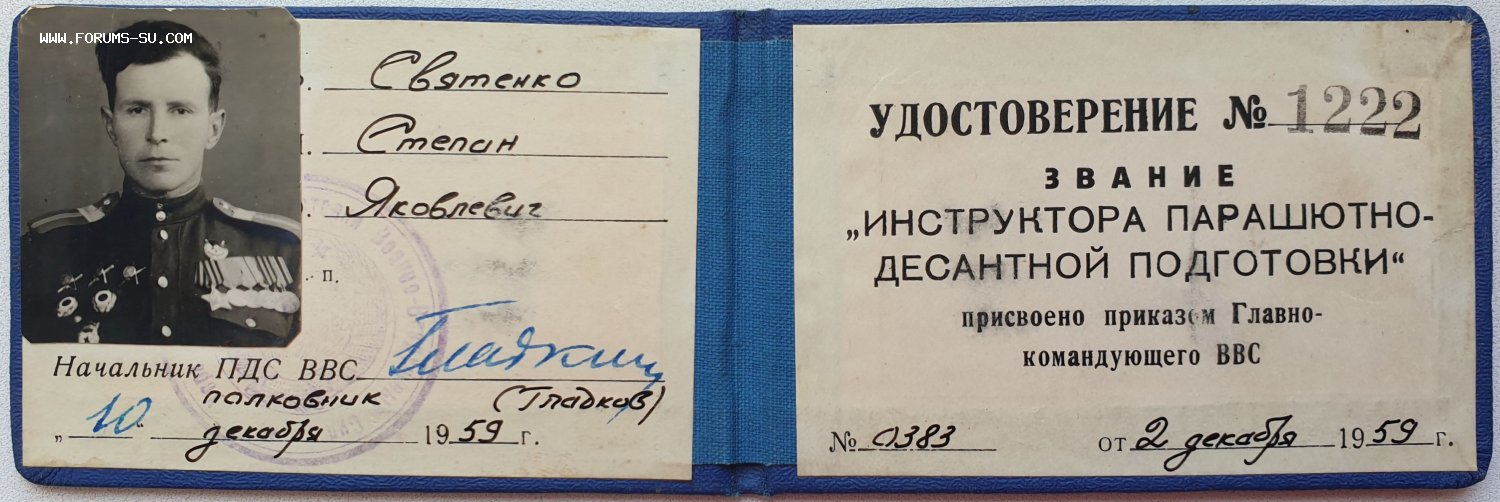 WWW.FORUMS-SU.COM
Святенко
Степан
Яковлевич
п.
Начальник ПДС ВВС
полковник (Гладков)
„10“ декабря 1959 г.
УДОСТОВЕРЕНИЕ № 1222
ЗВАНИЕ
„ИНСТРУКТОРА ПАРАШЮТНО-
ДЕСАНТНОЙ ПОДГОТОВКИ“
присвоено приказом Главно-
командующего ВВС
№ 0383 от 2 декабря 1959 г.